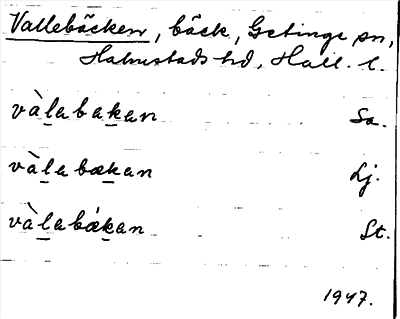 Vallebäcken, bäck, Getinge sn,
Halmstads hd, Hall. l.
vàlabakan Sa.
vàlabækan Lj.
vàlabákan St.
1947.